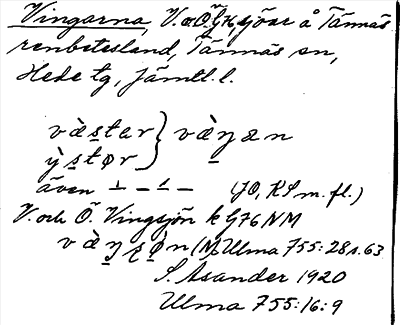 Vingarna, V. o. Ö. G76, sjöar å Tännäs
renbetesland, Tännäs sn,
Hede tg, Jämtl. l.
vàstar } vàŋan
ỳstør
även ⊥ – ⊥ – (JÖ, KS m. fl.)
V. och Ö. Vingsjön k G76 NM
vàŋʂøn (M) Ulma 755:28 s. 63
S. Asander 1920
Ulma 755:16:9